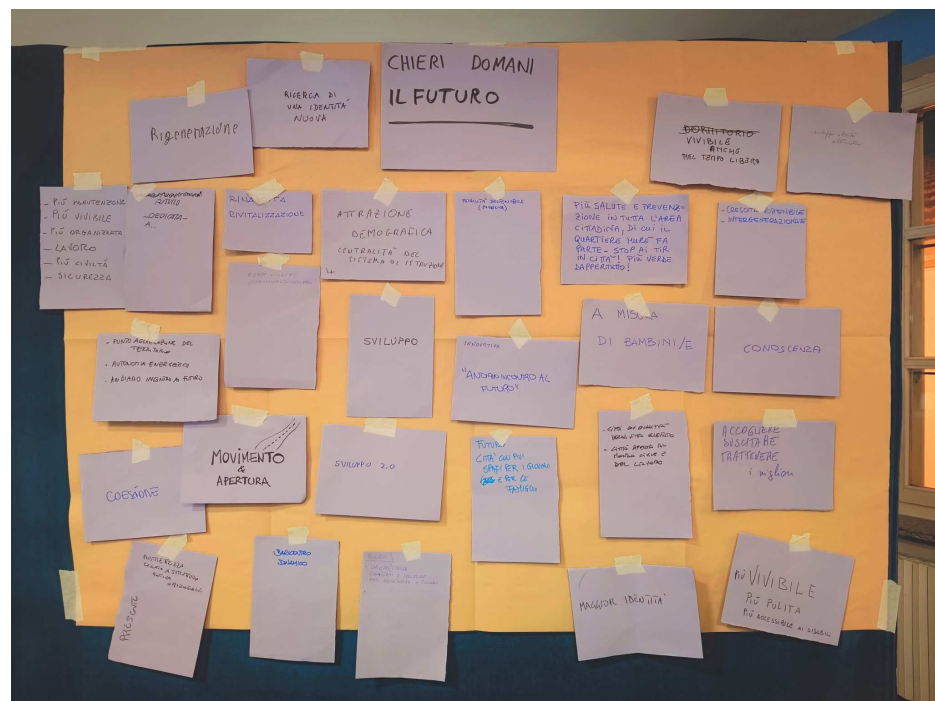 CHIERI DOMANI
IL FUTURO
RICERCA DI
UNA IDENTITÀ
NUOVA
Rigenerazione
DORMITORIO
VIVIBILE
ANCHE
NEL TEMPO LIBERO
- PIÙ MANUTENZIONE
- PIÙ VIVIBILE
- PIÙ ORGANIZZATA
- LAVORO
- PIÙ CIVILTÀ
- SICUREZZA
FUTURO
DEDICATA
A...
RINASCITA
RIVITALIZZAZIONE
ATTRAZIONE
DEMOGRAFICA
CENTRALITÀ DEL
SISTEMA DI ISTRUZIONE
MOBILITÀ SOSTENIBILE
PIÙ SALUTE E PREVEN-
ZIONE IN TUTTA L'AREA
CITTADINA, DI CUI IL
QUARTIERE MURÈ FA
PARTE - STOP AI TIR
IN CITTÀ! PIÙ VERDE
DAPPERTUTTO!
- CRESCITA SOSTENIBILE
- INTERGENERAZIONALE
SVILUPPO
A MISURA
DI BAMBINI/E
CONOSCENZA
. PUNTO AGGREGAZIONE DEL
TERRITORIO
. AUTONOMIA ENERGETICA
. ANDIAMO INCONTRO AL FUTURO
INNOVATIVA
"ANDIAMO INCONTRO AL
FUTURO"
COESIONE
MOVIMENTO
&
APERTURA
SVILUPPO 2.0
FUTURO
CITTÀ CON PIÙ
SPAZI PER I GIOVANI
E PER LE
FAMIGLIE
- CITTÀ
DELLA VITA
- CITTÀ
DEL LAVORO
ACCOGLIERE
SUSCITARE
TRATTENERE
i migliori
PRESENTE
BARICENTRO
DINAMICO
MAGGIOR IDENTITÀ
PIÙ VIVIBILE
PIÙ PULITA
PIÙ ACCESSIBILE AI DISABILI